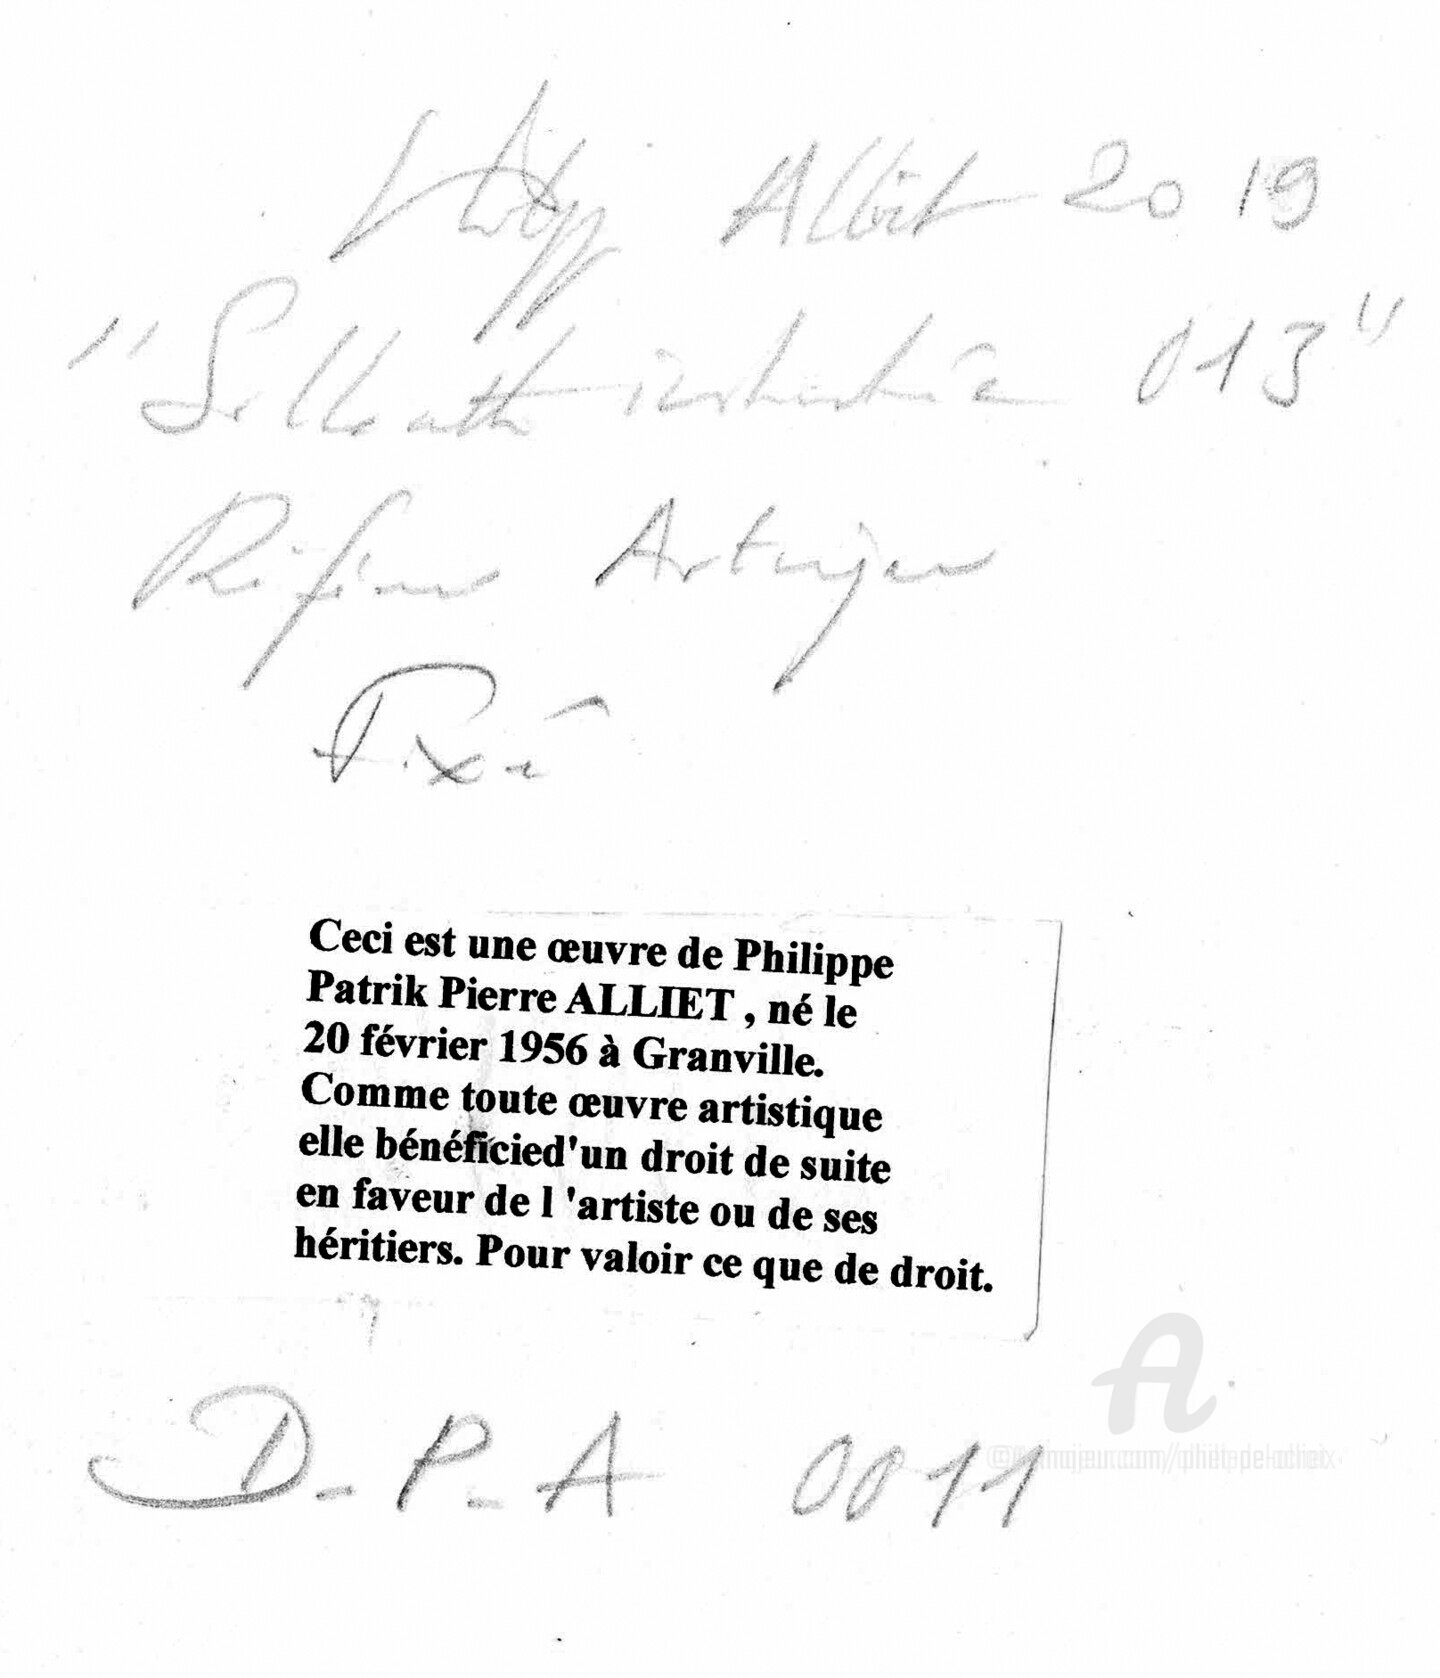 Philippe Alliet 2019
"Silhouette 013"
Artmajeur
Fixé
Ceci est une œuvre de Philippe
Patrik Pierre ALLIET , né le
20 février 1956 à Granville.
Comme toute œuvre artistique
elle bénéficied'un droit de suite
en faveur de l 'artiste ou de ses
héritiers. Pour valoir ce que de droit.
D-P-A 0011